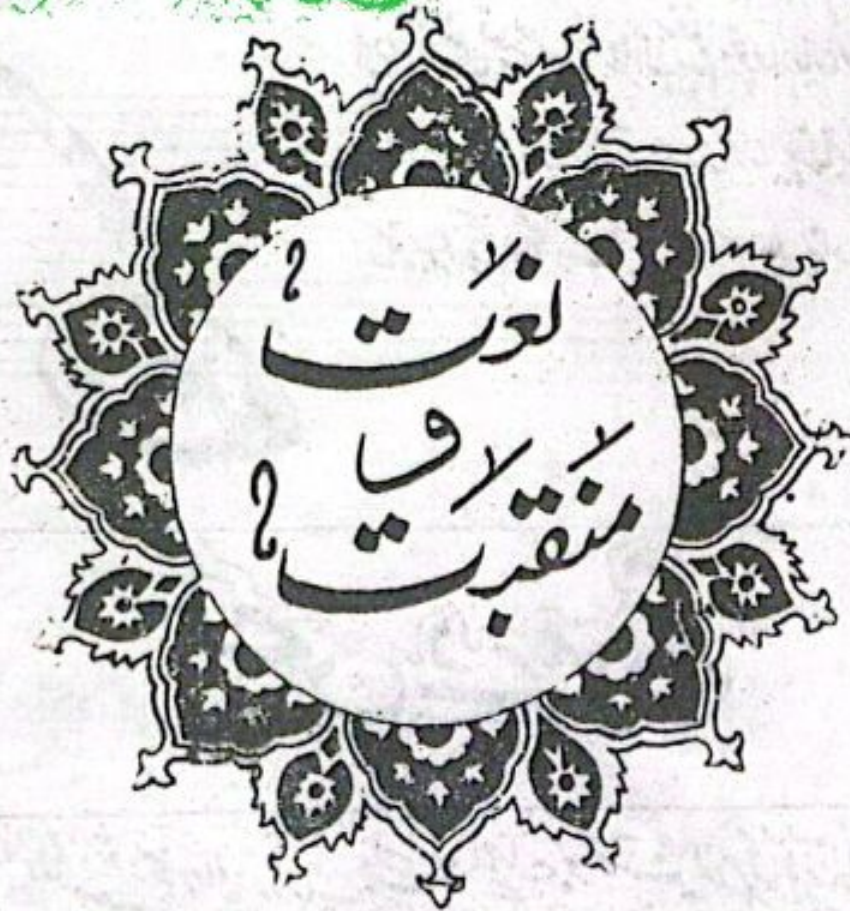 نعت
و
منقبت